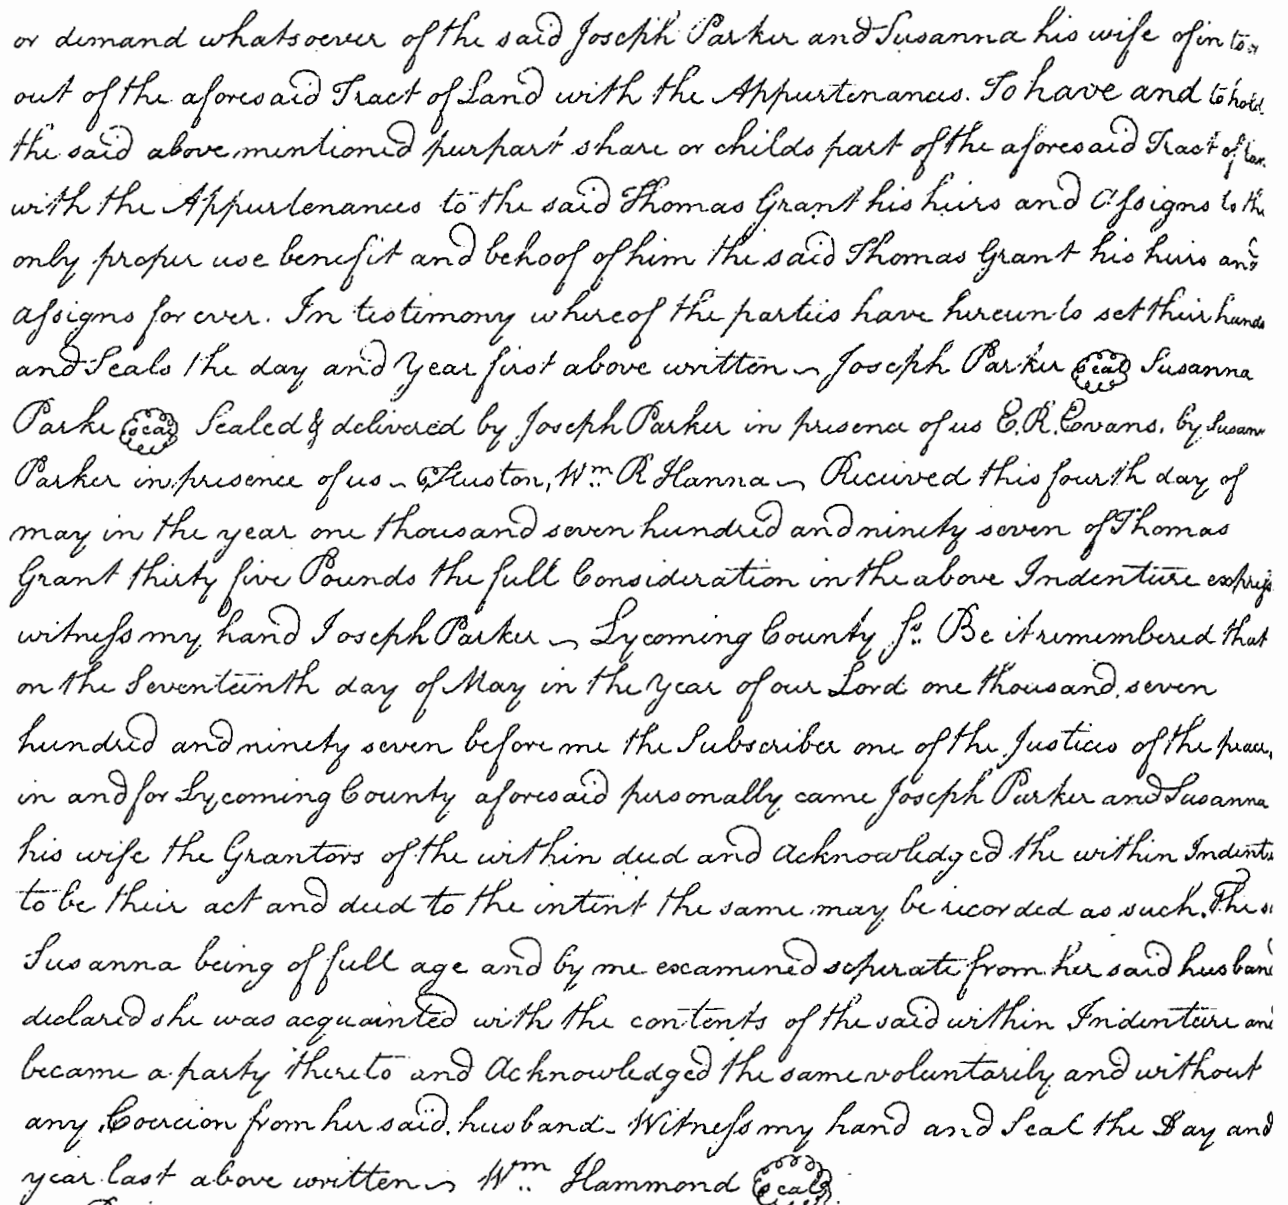 or demand whatsoever of the said Joseph Parker and Susanna his wife of in to or
out of the aforesaid Tract of Land with the Appurtenances. To have and to hold
the said above mentioned purpart share or childs part of the aforesaid Tract of Lan
with the Appurtenances to the said Thomas Grant his heirs and Assigns to the
only proper use benefit and behoof of him the said Thomas Grant his heirs and
assigns for ever. In testimony whereof the parties have hereunto set their hands
and Seals the day and Year first above written ~ Joseph Parker Seal Susanna
Parke Seal Sealed & delivered by Joseph Parker in presence of us E.R. Evans, by Susann
Parker in presence of us ~ Huston, Wm R Hanna ~ Received this fourth day of
may in the year one thousand seven hundred and ninety seven of Thomas
Grant thirty five Pounds the full Consideration in the above Indenture express
witness my hand Joseph Parker ~ Lycoming County Ss. Be it remembered that
on the Seventeenth day of May in the Year of our Lord one thousand, seven
hundred and ninety seven before me the Subscriber one of the Justices of the peace,
in and for Lycoming County aforesaid personally came Joseph Parker and Susanna
his wife the Grantors of the within deed and acknowledged the within Indentu
to be their act and deed to the intent the same may be recorded as such. The s
Susanna being of full age and by me examined seperate from her said husband
declared she was acquainted with the contents of the said within Indenture and
became a party thereto and acknowledged the same voluntarily and without
any Coercion from her said husband ~ Witness my hand and Seal the Day and
year last above written ~ Wm Hammond Seal